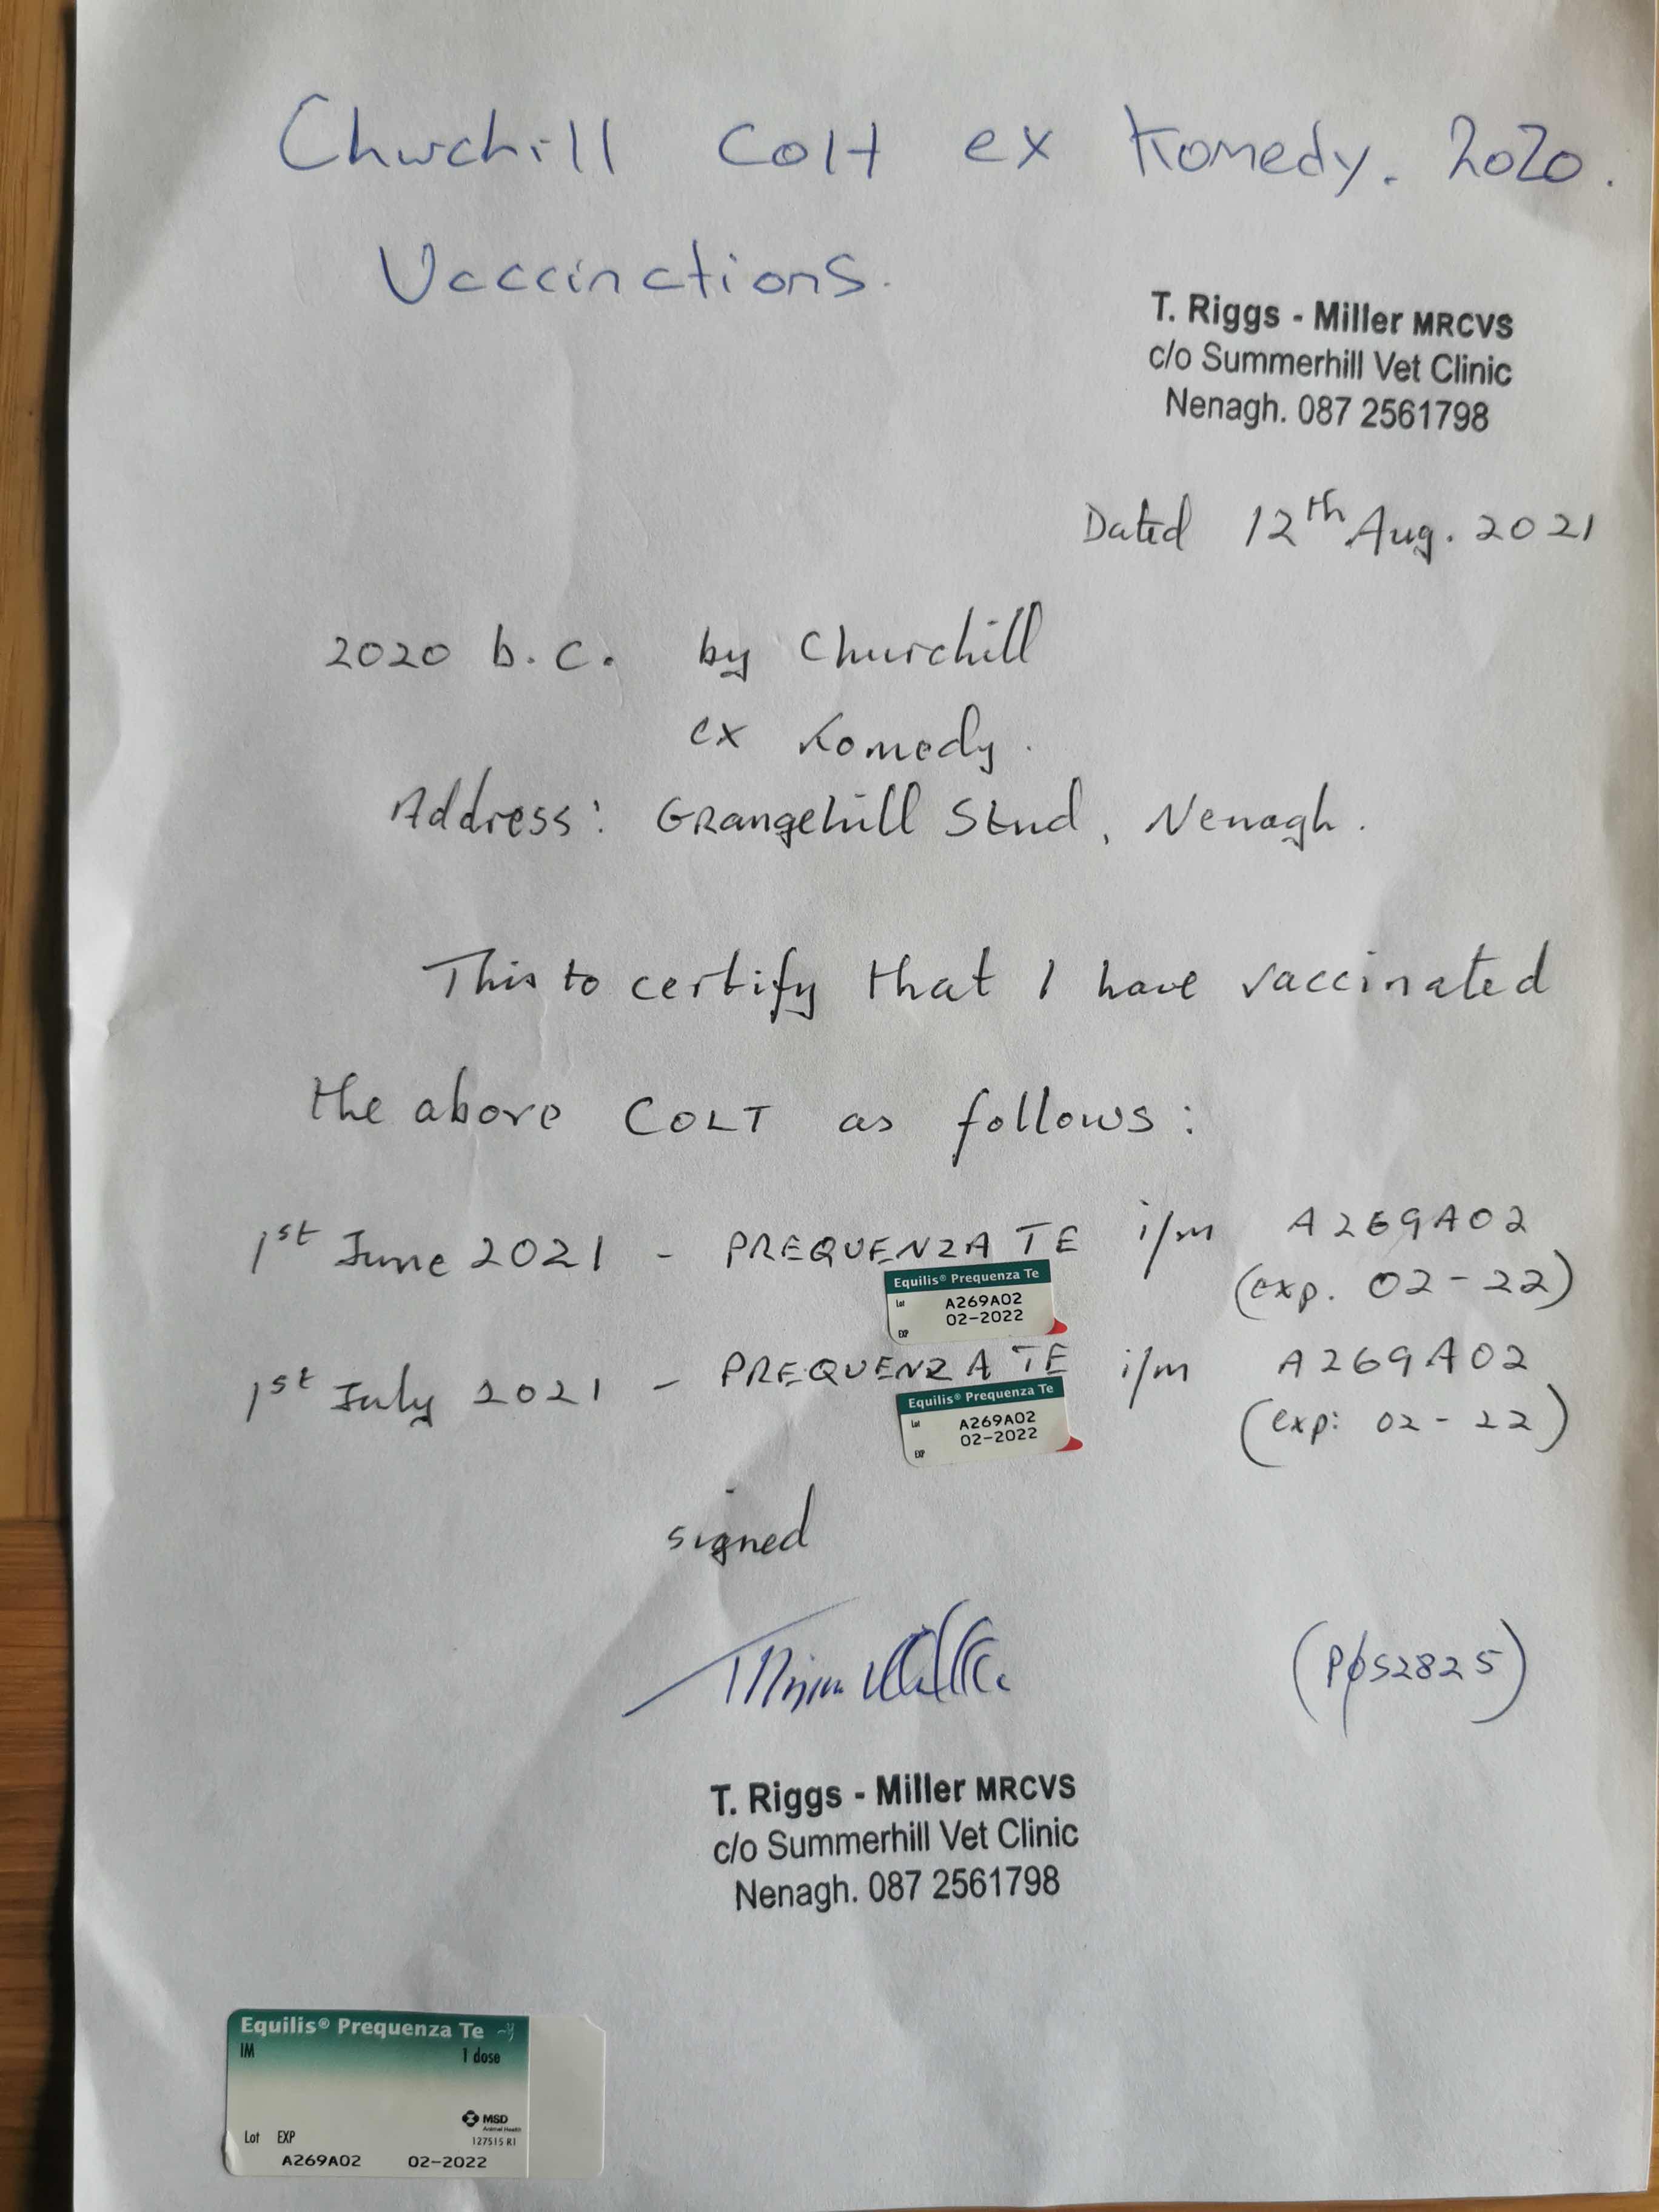 Churchill Colt ex Komedy. 2020.
Vaccinctions.
T. Riggs - Miller MRCVS
c/o Summerhill Vet Clinic
Nenagh. 087 2561798
Dated 12th Aug. 2021
2020 b.c. by Churchill
ex Komedy.
Address: Grangehill Stud, Nenagh.
This to certify that I have vaccinated
the above COLT as follows:
1st June 2021 - PREQUENZA TE i/m A269A02
(exp. 02-22)
Equilis® Prequenza Te
Lot A269A02
02-2022
EXP
1st July 2021 - PREQUENZA TE i/m A269A02
(exp: 02-22)
Equilis® Prequenza Te
Lot A269A02
02-2022
EXP
signed
T. Riggs - Miller MRCVS
c/o Summerhill Vet Clinic
Nenagh. 087 2561798
Equilis® Prequenza Te
IM 1 dose
MSD
Animal Health
127515 R1
Lot EXP
A269A02 02-2022